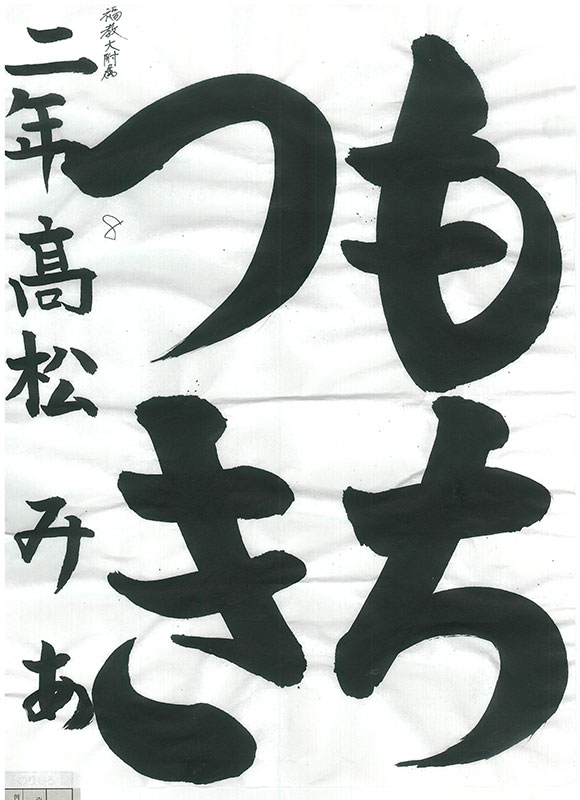 もち
つき
福教大附属
二年 髙松 みあ
8